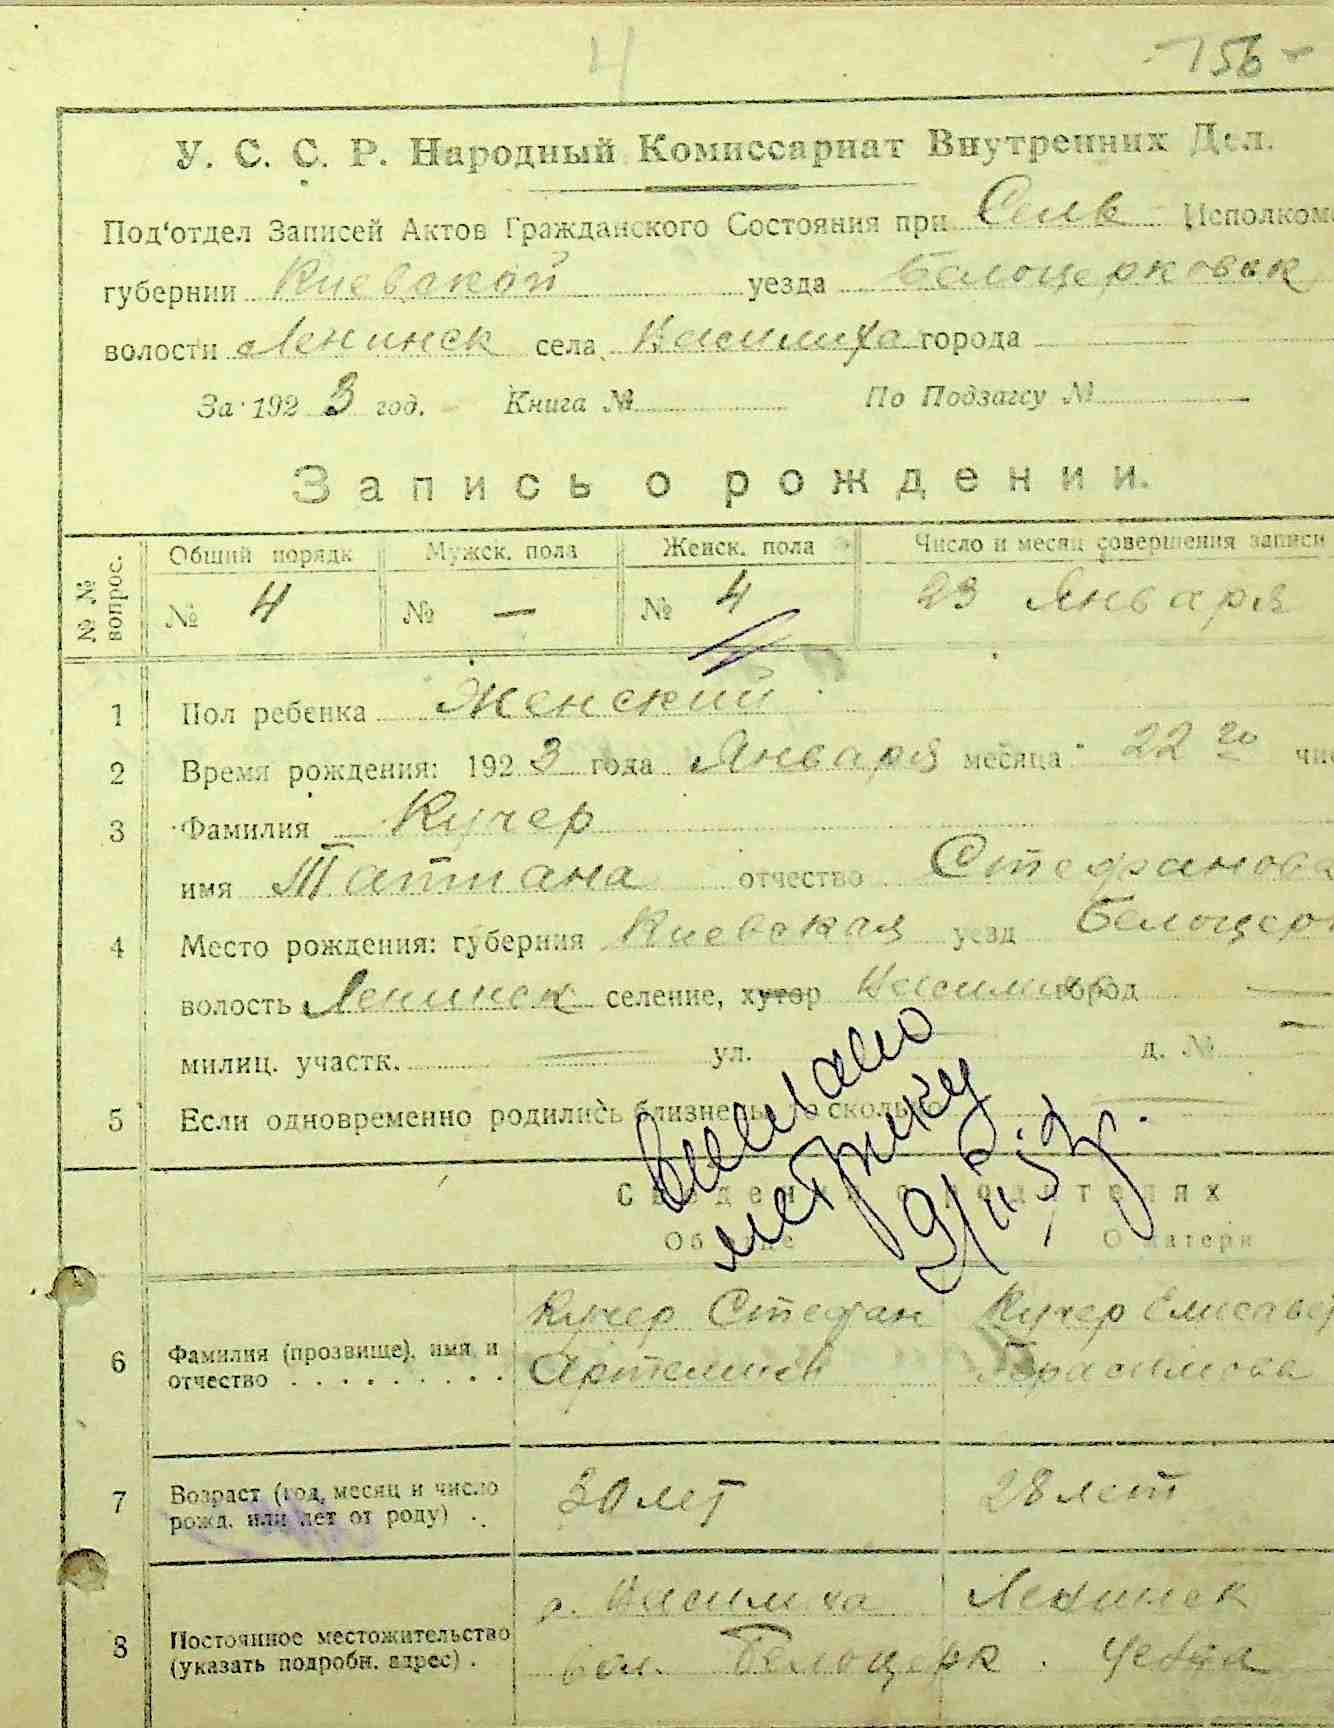 4
- 156 -
У. С. С. Р. Народный Комиссариат Внутренних Дел.
Под'отдел Записей Актов Гражданского Состояния при Сельв Исполкоме
губернии Киевской уезда Белоцерковск
волости Ленинск села Насилиха города
За 1923 год. Книга № По Подзагсу №
Запись о рождении.
№ № вопрос.
Общий порядк Мужск. пола Женск. пола Число и месяц совершения записи
№ 4 № — № 4 23 Января
4
1 Пол ребенка Женский
2 Время рождения: 1923 года Января месяца 22 го чис
3 Фамилия Кучер
имя Татиана отчество Стефанова
4 Место рождения: губерния Киевская уезд Белоцерк
волость Ленинск селение, хутор город —
милиц. участк. — ул. д. № —
5 Если одновременно родились близнецы, то сколько —
выписано
метрику
Сведения о родителях
Об отце О матери
6 Фамилия (прозвище), имя и
отчество . . . . . . . . .
Кучер Стефан
Артемиев
Кучер Елисавет
Герасимова
7 Возраст (год, месяц и число
рожд. или лет от роду) . .
30 лет 28 лет
8 Постоянное местожительство
(указать подробн. адрес) .
с. Насилиха Ленинск
вол. Белоцерк. уезда